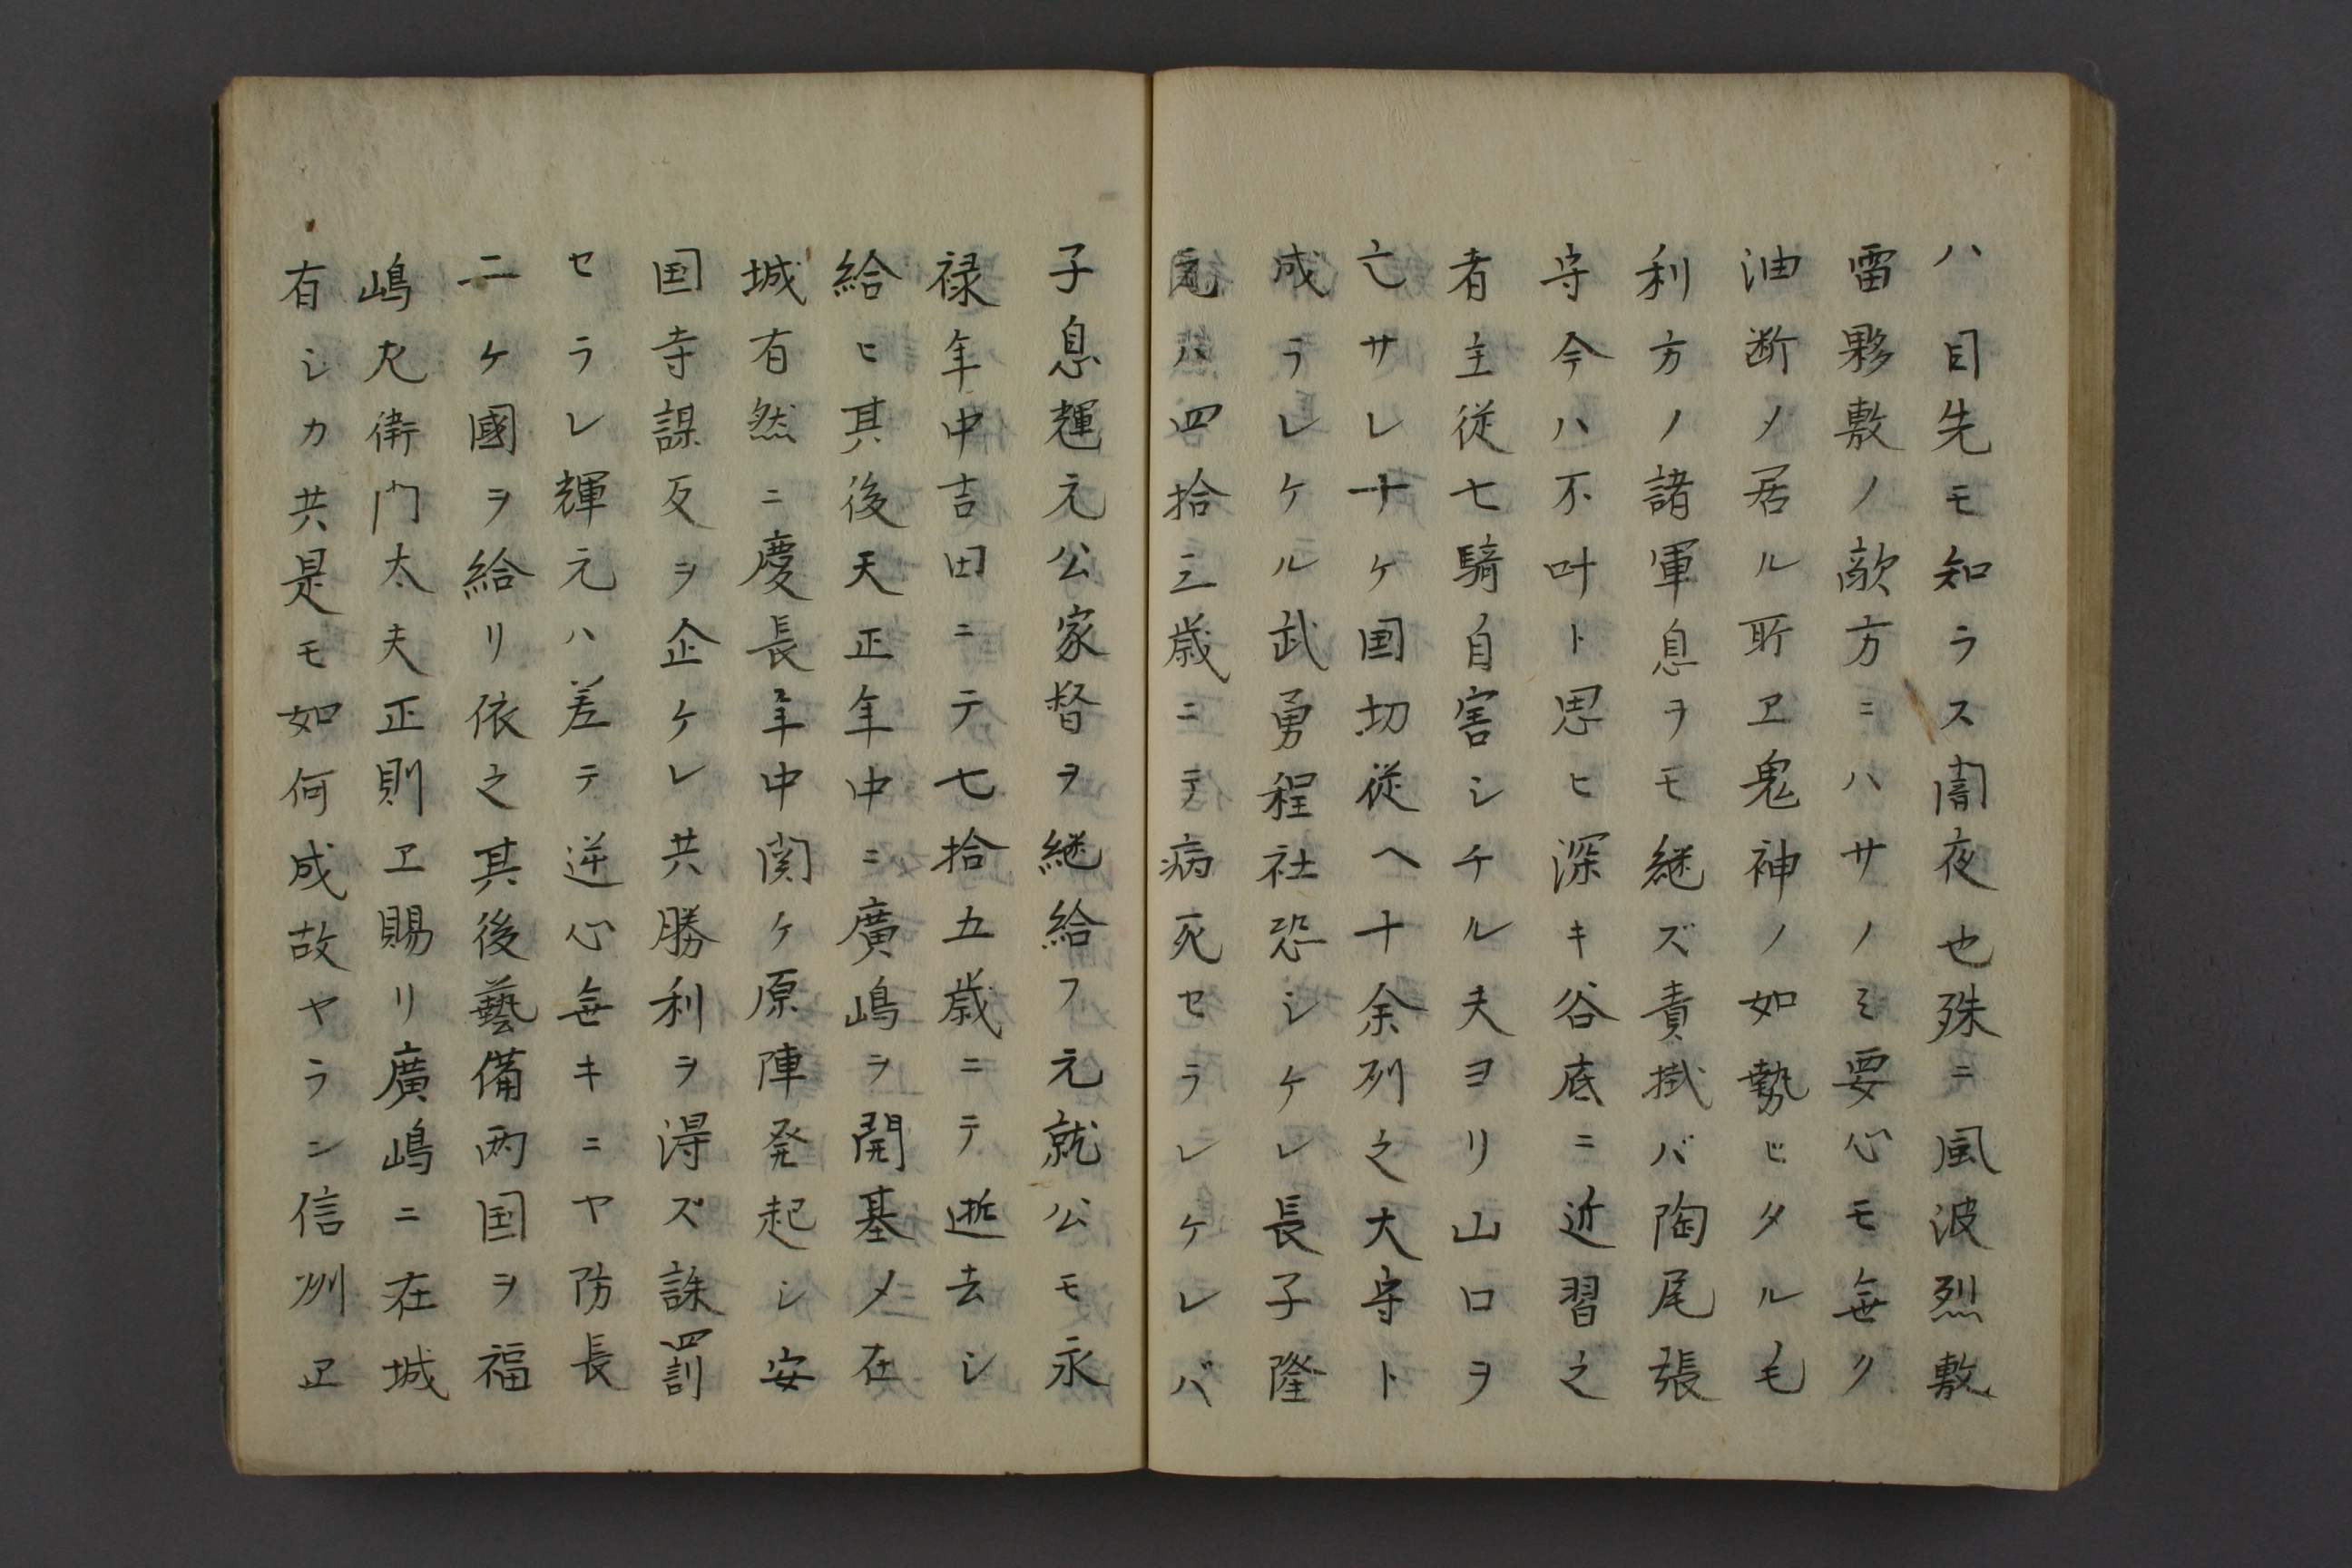 ハ目先モ知ラス闇夜也殊ニ風波烈敷
雷夥敷ノ敵方ニハサノミ要心モ無ク
油断ノ居ル所ヱ鬼神ノ如勢ヒタル毛
利方ノ諸軍息ヲモ継ズ責掛バ陶尾張
守今ハ不叶ト思ヒ深キ谷底ニ近習之
者主従七騎自害シチル夫ヨリ山口ヲ
亡サレ十ケ国切従ヘ十余列之大守ト
成ラレケル武勇程社恐シケレ長子隆
元ハ四拾三歳ニテ病死セラレケレバ
子息輝元公家督ヲ継給フ元就公モ永
禄年中吉田ニテ七拾五歳ニテ逝去シ
給ヒ其後天正年中ニ廣嶋ヲ開基メ在
城有然ニ慶長年中関ケ原陣発起シ安
国寺謀反ヲ企ケレ共勝利ヲ得ズ誅罰
セラレ輝元ハ差テ逆心無キニヤ防長
二ケ國ヲ給リ依之其後藝備両国ヲ福
嶋左衛門太夫正則ヱ賜リ廣嶋ニ在城
有シカ共是モ如何成故ヤラン信州ヱ